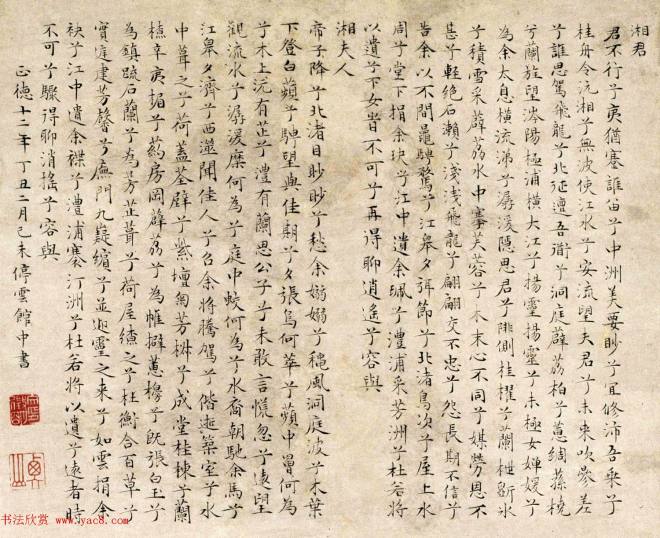 湘君
君不行兮夷猶蹇誰留兮中洲美要眇兮宜修沛吾乘兮
桂舟令沅湘兮無波使江水兮安流望夫君兮未來吹參差
兮誰思駕飛龍兮北征邅吾道兮洞庭薜荔柏兮蕙綢蓀橈
兮蘭旌望涔陽極浦橫大江兮揚靈揚靈兮未極女嬋媛兮
為余太息橫流涕兮潺湲隱思君兮陫側桂櫂兮蘭枻斲冰
兮積雪采薜荔水中搴芙蓉兮木末心不同兮媒勞恩不
甚兮輕絕石瀨兮淺淺飛龍兮翩翩交不忠兮怨長期不信兮
告余以不閒鼂騁騖兮江皋夕弭節兮北渚鳥次兮屋上水
周兮堂下捐余玦兮江中遺余珮兮澧浦采芳洲兮杜若將
以遺兮下女旹不可兮再得聊逍遙兮容與
湘夫人
帝子降兮北渚目眇眇兮愁余嫋嫋兮秋風洞庭波兮木葉
下登白蘋兮騁望與佳期兮夕張鳥何萃兮蘋中罾何為
兮木上沅有芷兮澧有蘭思公子兮未敢言慌忽兮遠望
觀流水兮潺湲麋何為兮庭中蛟何為兮水裔朝馳余馬兮
江皋夕濟兮西澨聞佳人兮召余將騰駕兮偕逝築室兮水
中葺之兮荷蓋荃壁兮紫壇匊芳椒兮成堂桂棟兮蘭
橑辛夷楣兮葯房罔薜荔兮為帷擗蕙櫋兮既張白玉兮
為鎮疏石蘭兮為芳芷葺兮荷屋繚之兮杜衡合百草兮
實庭建芳馨兮廡門九嶷繽兮並迎靈之來兮如雲捐余
袂兮江中遺余褋兮澧浦搴汀洲兮杜若將以遺兮遠者時
不可兮驟得聊逍遙兮容與
正德十二年丁丑二月己未停雲館中書
书法欣赏 www.yac8.com